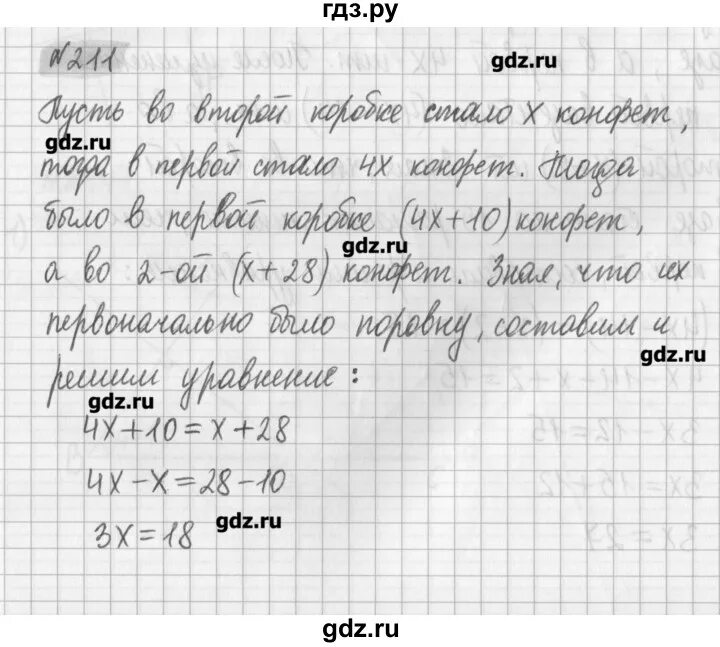 гдз.ру
№211
gdz.ru
Пусть во второй коробке стало x конфет,
gdz.ru
тогда в первой стало 4x конфет. Тогда
было в первой коробке (4x+10) конфет,
gdz.ru
а во 2-ой (x+28) конфет. Зная, что их
первоначально было поровну, составим и
gdz.ru
решим уравнение:
gdz.ru
4x+10=x+28
4x-x=28-10
gdz.ru
3x=18
gdz.ru